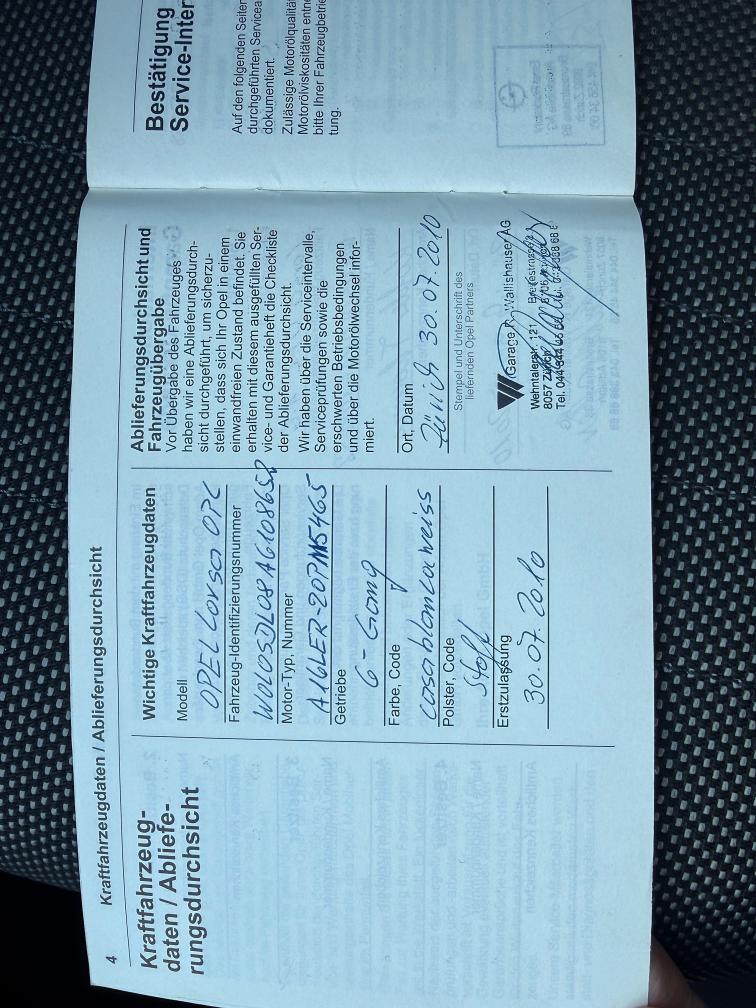 4
Kraftfahrzeugdaten / Ablieferungsdurchsicht
Kraftfahrzeug-
daten / Abliefe-
rungsdurchsicht
Wichtige Kraftfahrzeugdaten
Modell
OPEL Corsa OPC
Fahrzeug-Identifizierungsnummer
W0L0SDL08A6108658
Motor-Typ, Nummer
A16LER-20PM5465
Getriebe
6-Gang
Farbe, Code
casablancaweiss
Polster, Code
Stoff
Erstzulassung
30.07.2010
Ablieferungsdurchsicht und
Fahrzeugübergabe
Vor Übergabe des Fahrzeuges
haben wir eine Ablieferungsdurch-
sicht durchgeführt, um sicherzu-
stellen, dass sich Ihr Opel in einem
einwandfreien Zustand befindet. Sie
erhalten mit diesem ausgefüllten Ser-
vice- und Garantieheft die Checkliste
der Ablieferungsdurchsicht.
Wir haben über die Serviceintervalle,
Serviceprüfungen sowie die
erschwerten Betriebsbedingungen
und über die Motorölwechsel infor-
miert.
Ort, Datum
Zürich 30.07.2010
Stempel und Unterschrift des
liefernden Opel Partners
Garage R. Wallishauser AG
Wehntalerstr. 121
8057 Zürich
Tel. 044
Bestätigung
Service-Inter
Auf den folgenden Seiten
durchgeführten Servicea
dokumentiert.
Zulässige Motorölqualität
Motorölviskositäten entne
bitte Ihrer Fahrzeugbetrie
tung.